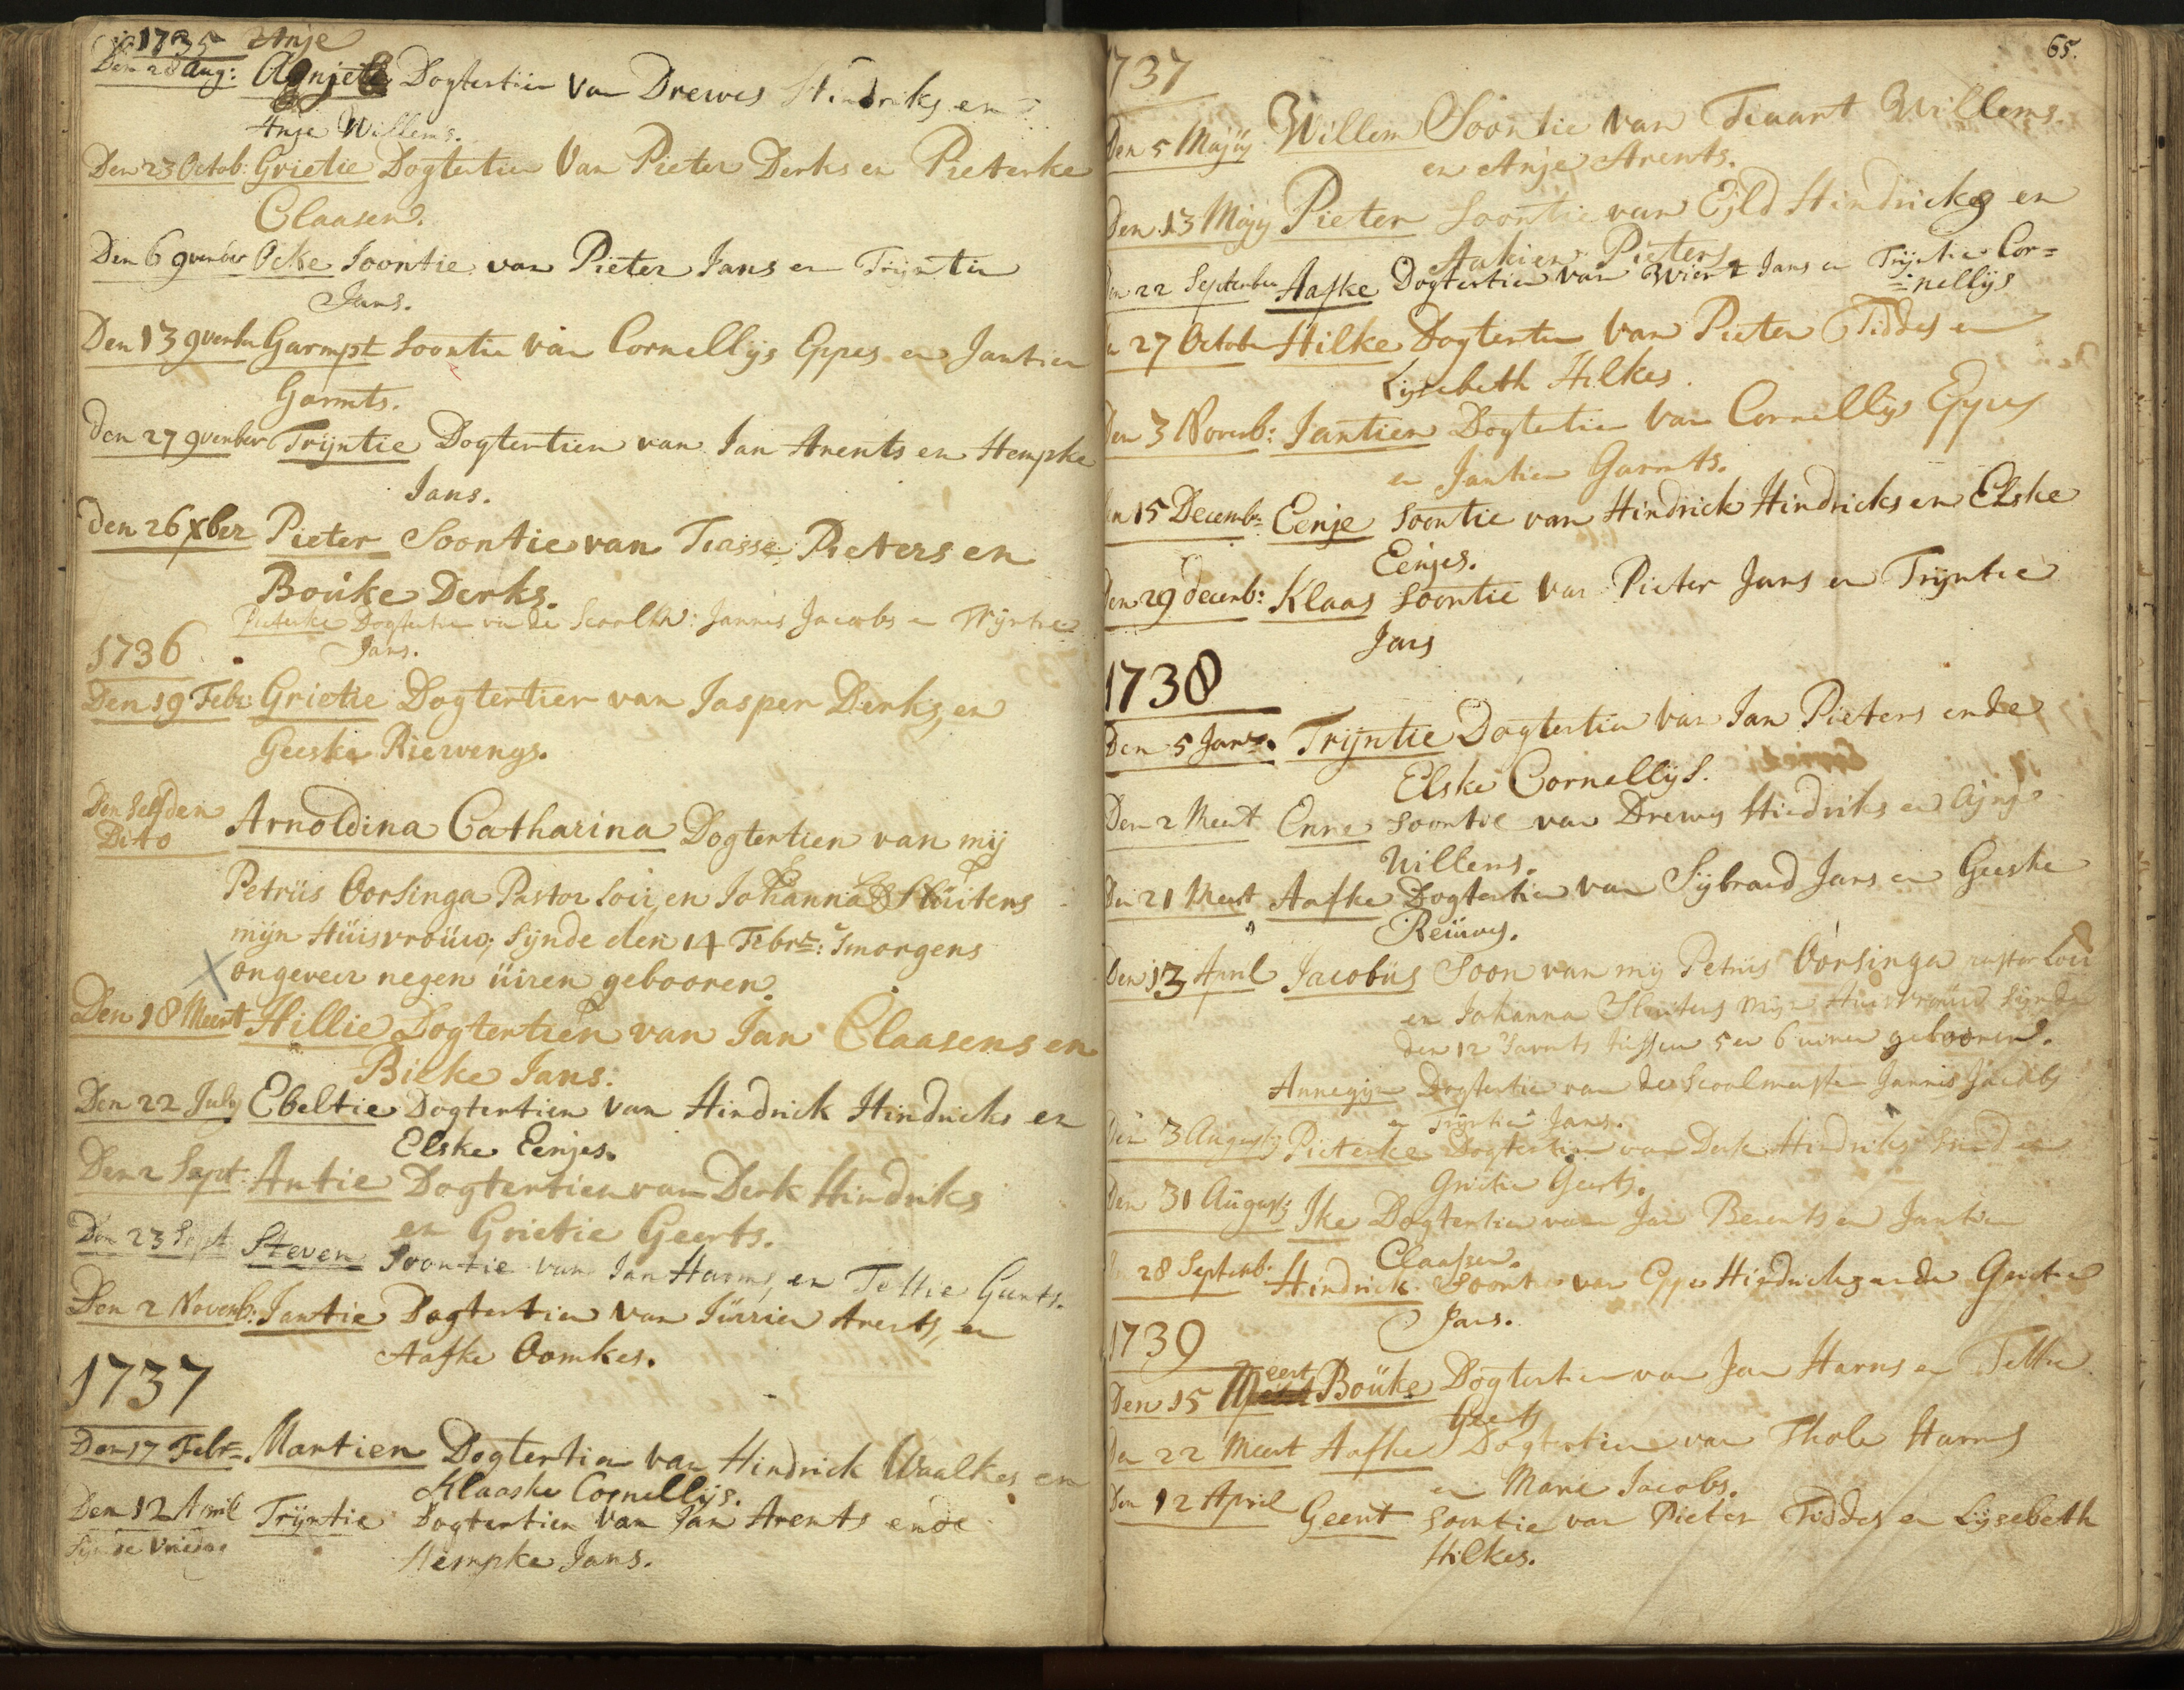 1735 Anje
Den 28 Aug: Dogtertien van Drewes Hindriks en
Anje Willems.
Den 23 Octob: Grietie Dogtertien Van Pieter Derks en Pieterke
Claasen.
Den 6 9vember Ocke Soontie van Pieter Jans en Trijntien
Jans.
Den 13 9vember Garmpt Soontie van Cornellijs Eppes en Jantien
Garmts.
Den 27 9vember Trijntie Dogtertien van Jan Arents en Hempke
Jans.
Den 26 Xber Pieter Soontie van Tiasse Pieters en
Bouke Derks.
Pieterke Dogtertien van de Jannis Jacobs en Trijntie
Jans.
1736
Den 19 Febr: Grietie Dogtertien van Jasper Derks, en
Geeske Riewengs.
Den Selfden Arnoldina Catharina Dogtertien van mij
Dito
Petrüs Oorsinga Pastor Loci, en Johanna Slüitens
mijn Hüisvroüw, Sijnde den 14 Febr: Smorgens
ongeveer negen üiren gebooren.
Den 18 Meert Hillie Dogtertien van Jan Claasens en
Bieke Jans.
Den 22 July Ebeltie Dogtertien van Hindrick Hindricks en
Elske Eenjes.
Den 2 Sept Antie Dogtertien van Derk Hindriks
en Grietie Geerts.
Den 23 Sept Steven Soontie van Jan Harms, en Tettie
Den 2 Novemb: Jantie Dogtertien van Jürrien Arents, en
Aafke Oomkes.
1737
Den 17 Febr: Martien Dogtertien van Hindrick Waalkes en
Klaaske Cornellijs.
Den 12 April Trijntie Dogtertien van Jan Arents ende
Sijnde
Hempke Jans.
65.
1737
Den 5 Majij Willem Soontie van Teuant Willems.
en Anje Arents.
Den 13 Majij Pieter Soontie van Ejld Hindricks en
Aakien Pieters
Den 22 September Aafke Dogtertien van Wiert Jans en Trijntie Cor=
=nellijs
Den 27 Octobr Hilke Dogtertien van Pieter Tiddes en
Lijsebeth Hilkes.
Den 3 Novemb: Jantien Dogtertien van Cornellijs Eppes
en Jantien Garmts.
Den 15 Decemb: Eenje Soontie van Hindrick Hindricks en Elske
Eenjes.
Den 29 Decemb: Klaas Soontie van Pieter Jans en Trijntie
Jans
1738
Den 5 Janr. Trijntie Dogtertien van Jan Pieters ende
Elske Cornellijs.
Den 2 Meert Enne Soontie van Drewes Hindriks en
Willems.
Den 21 Meert Aafke Dogtertien van Sijbrand Jans en Geeske
Reiüwes.
Den 13 April Jacobüs Soon van mij Petrüs Oorsinga Pastor Loci
en Johanna Sluitens mijn Huisvrouw Sijnde
den 12 tussen 5 en 6 uiren gebooren.
Annegijn Dogtertien van de Scoolmeester Jannis Jacobs
en Trijntien Jans.
Den 3 August Pieterke Dogtertien van Derk Hindriks en
Grietie Geerts.
Den 31 August: Ike Dogtertien van Jan Berents en Jantien
Claassen.
28 Septemb: Hindrick Soontie van Eppe Hindricks ende Grietie
Jans.
1739
Den 15 Meert Boüke Dogtertien van Jan Harms en Tettie
Geerts
Den 22 Meert Aafke Dogtertien van Thole Harms
en Marie Jacobs.
Den 12 April Geert Soontie van Pieter Tiddes en Lijsebeth
Hilkes.